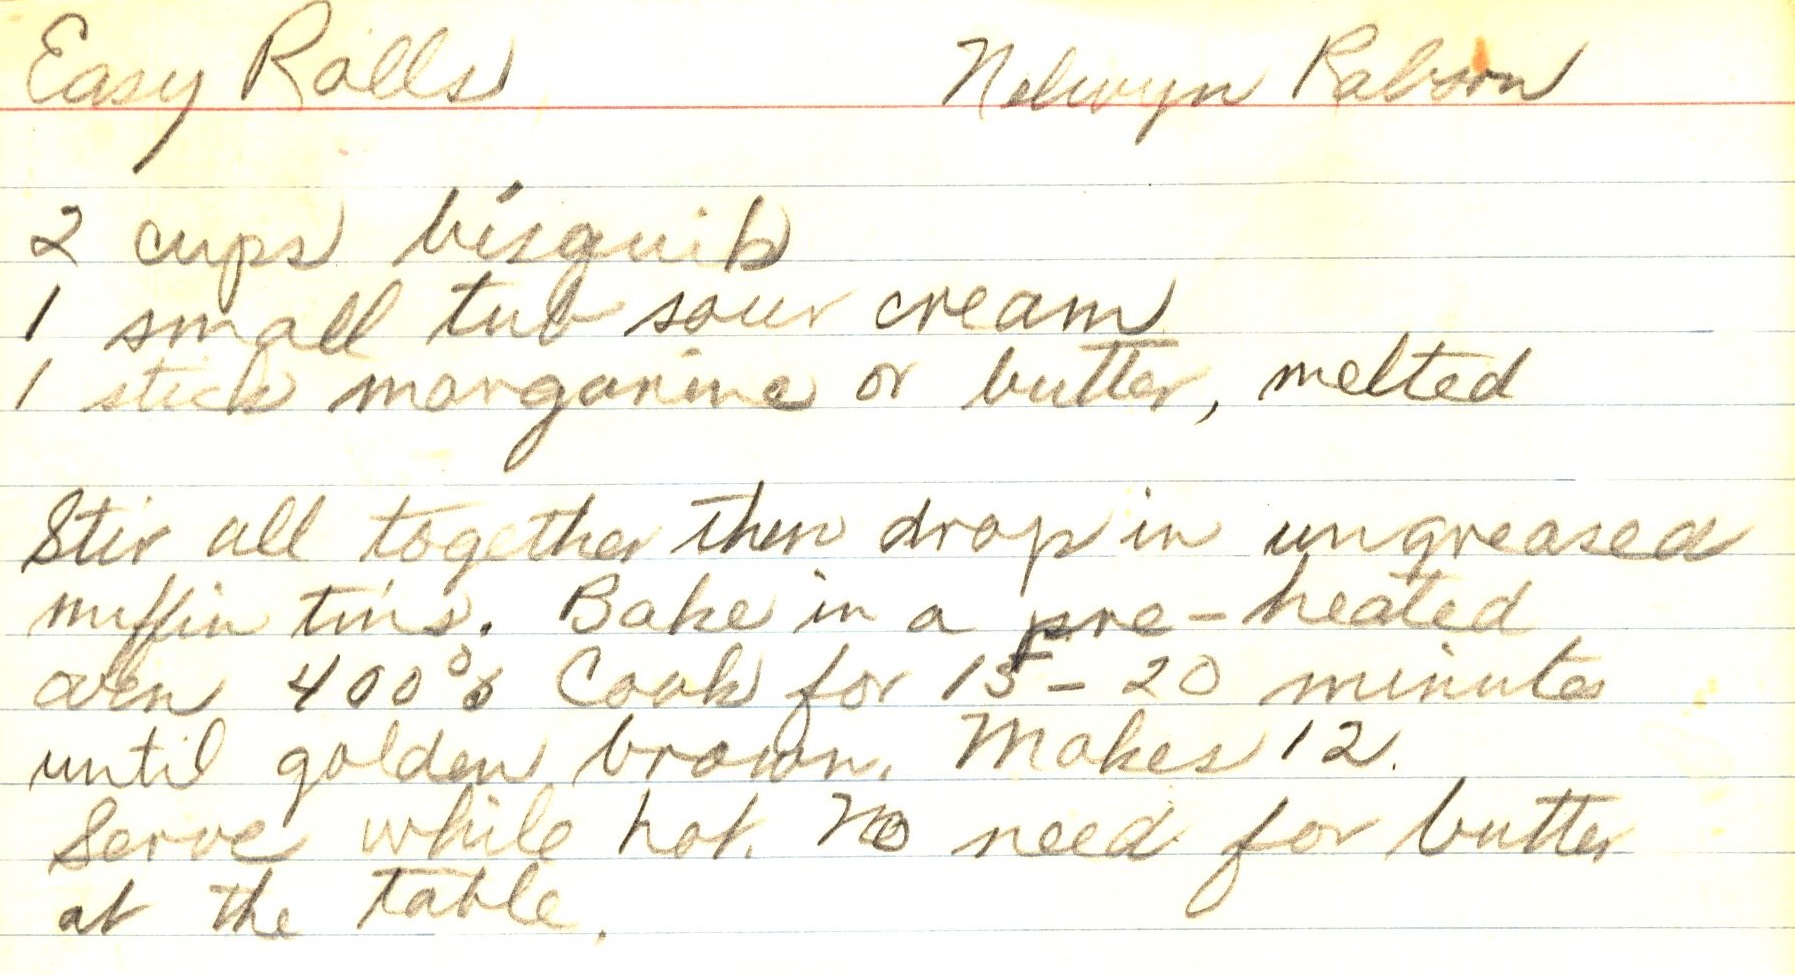 Easy Rolls Nelwyn Raborn
2 cups bisquik
1 small tub sour cream
1 stick margarine or butter, melted
Stir all together then drop in ungreased
muffin tins. Bake in a pre-heated
oven 400° Cook for 15-20 minutes
until golden brown. Makes 12.
Serve while hot. No need for butter
at the table.